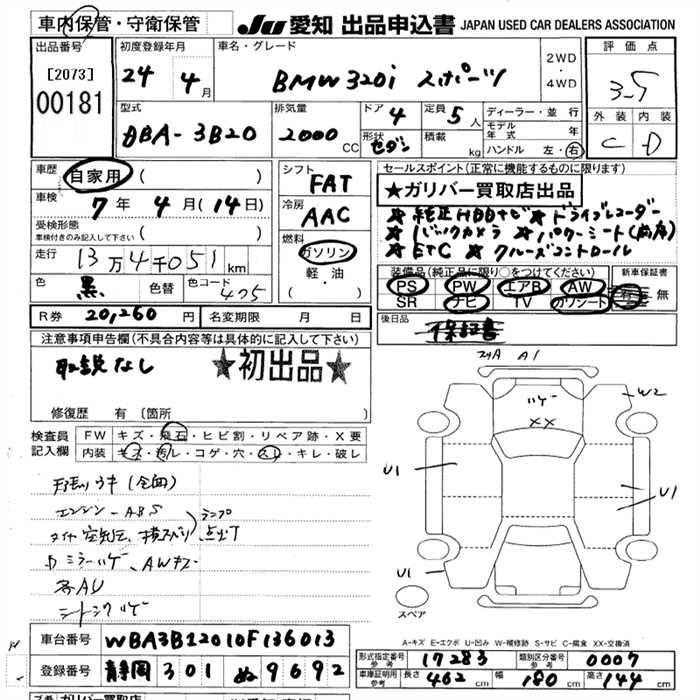 車内保管・守衛保管 JU 愛知 出品申込書 JAPAN USED CAR DEALERS ASSOCIATION
出品番号 初度登録年月 車名・グレード 評価点
[2073] 24年 4月 BMW 320i スポーツ 2WD・4WD 3.5
00181
型式 排気量 ドア 4 定員 5人 ディーラー・並行 外装 内装
DBA-3B20 2000CC 形状 セダン 積載 kg モデル年式 年 C D
ハンドル 左・右
車歴 自家用 ( ) シフト FAT セールスポイント(正常に機能するものに限ります)
車検 7年 4月(14日) 冷房 AAC ★ガリバー買取店出品
★純正HDDナビ ★ドライブレコーダー
受検形態 車検付きのみ記入して下さい ( ) 燃料 ★バックカメラ ★パワーシート(両席)
走行 13万4千051km ガソリン ★ETC ★クルーズコントロール
色 黒 色替 色コード 475 軽・油 装備品(純正品に限り○をつけてください) 新車保証書
PS PW エアB AW 有・無
SR ナビ TV カワシート
R券 20,260円 名変期限 月 日 後日品 保証書
注意事項申告欄(不具合内容等は具体的に記入して下さい)
取説なし ★初出品★
修復歴 有 (箇所
24A A1
検査員記入欄 FW キズ・飛石・ヒビ割・リペア跡・X要
内装 キズ・汚レ・コゲ・穴・スレ・キレ・破レ
ハゲ
XX
W2
U1
U1
U1
(全面)
エンジン・ABS
タイヤ空気圧、横スベリ ランプ点灯
ミラーハゲ、AWキズ
各AU
スペア
A-キズ E-エクボ U-凹み W-補修跡 S-サビ C-腐食 XX-交換済
車台番号 WBA3B12010F136013
形式指定番号 参考 17283 類別区分番号 参考 0007
登録番号 静岡 301 ぬ 9692
車庫証明用 参考 長さ 462cm 幅 180cm 高さ 144cm
ガリバー買取店